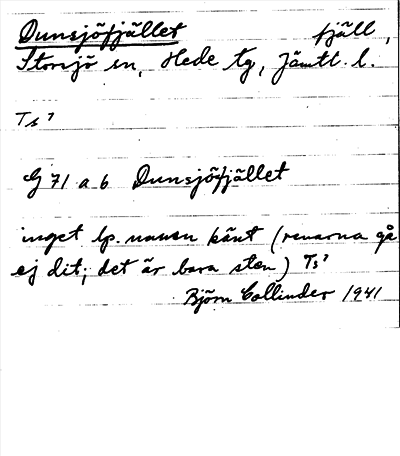 Dunsjöfjället fjäll,
Storsjö sn, Hede tg, Jämtl. l.
Ts?
G 71 a b Dunsjöfjället
inget lp. namn känt (renarna gå
ej dit; det är bara sten) Ts?
Björn Collinder 1941